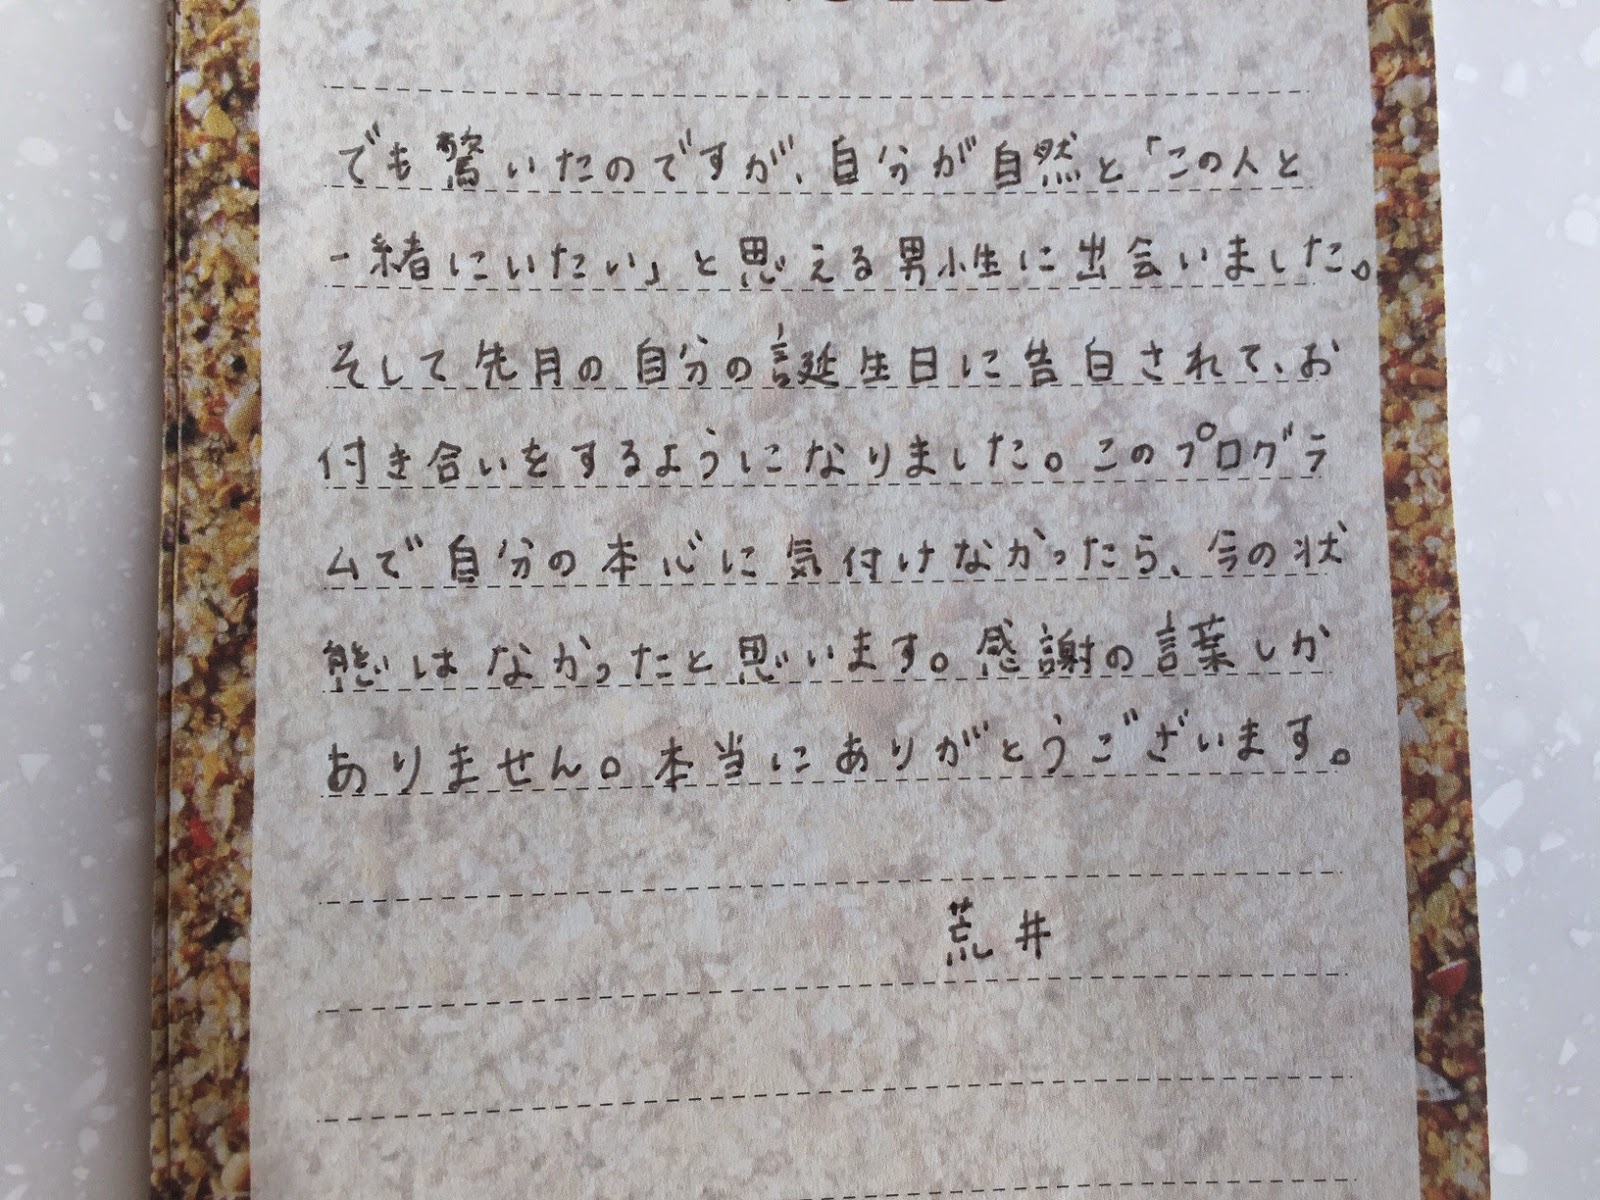 でも驚いたのですが、自分が自然と「この人と
一緒にいたい」と思える男性に出会いました。
そして先月の自分の誕生日に告白されて、お
付き合いをするようになりました。このプログラ
ムで自分の本心に気付けなかったら、今の状
態はなかったと思います。感謝の言葉しか
ありません。本当にありがとうございます。
荒井